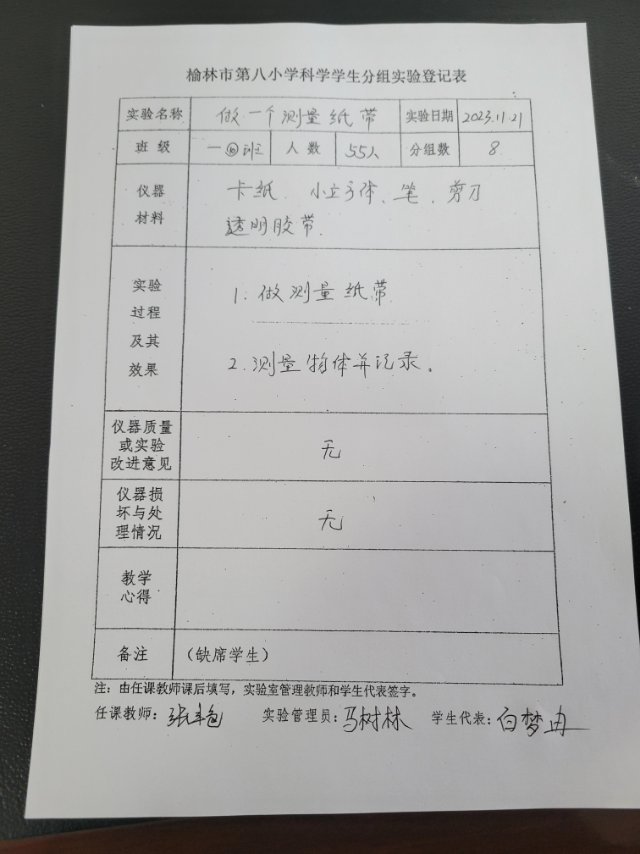 榆林市第八小学科学学生分组实验登记表
实验名称 做一个测量纸带 实验日期 2023.11.21
班级 一 班 人数 55人 分组数 8
仪器材料 卡纸、小立方体、笔、剪刀
透明胶带
实验过程及其效果 1.做测量纸带
2.测量物体并记录。
仪器质量或实验改进意见 无
仪器损坏与处理情况 无
教学心得
备注 (缺席学生)
注：由任课教师课后填写，实验室管理教师和学生代表签字。
任课教师： 实验管理员：马树林 学生代表：白梦冉